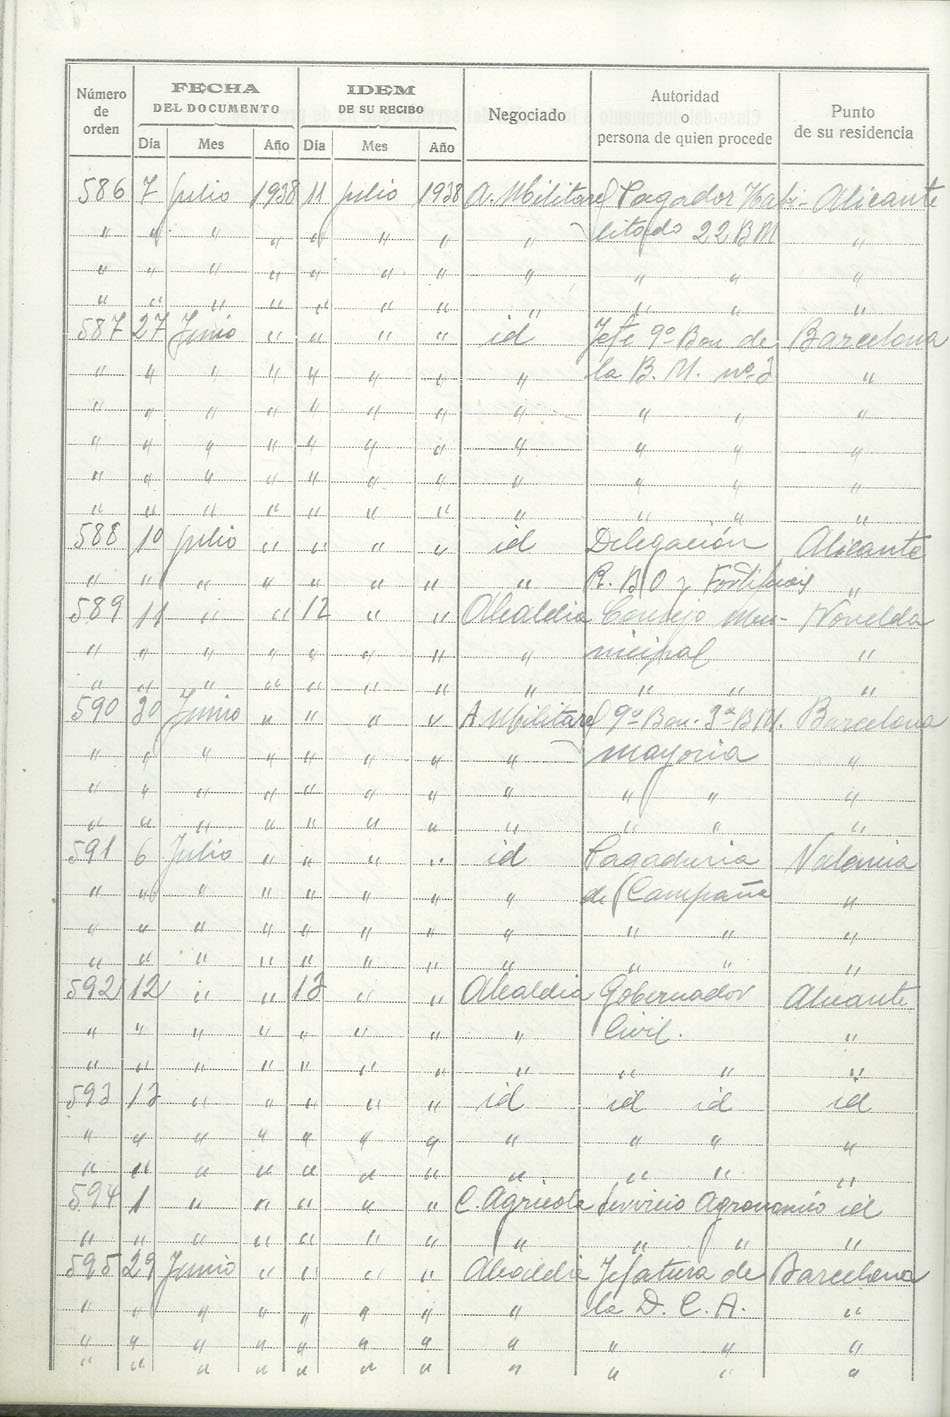 Número de orden | FECHA DEL DOCUMENTO | IDEM DE SU RECIBO | Negociado | Autoridad o persona de quien procede | Punto de su residencia
Día | Mes | Año | Día | Mes | Año
586 7 Julio 1938 11 Julio 1938 A. Militares Pagador Habi- Alicante
" " " " " " " " litado 22 BM "
" " " " " " " " " " "
" " " " " " " " " " "
587 27 Junio " " " " id Jefe 9º Bon de Barcelona
" " " " " " " " la B. M. nº 3 "
" " " " " " " " " " "
" " " " " " " " " " "
" " " " " " " " " " "
" " " " " " " " " " "
588 10 Julio " " " " id Delegación Alicante
" " " " " " " " R. B O y "
589 11 " " 12 " " Alcaldia Consejo Mu- Novelda
" " " " " " " " nicipal "
" " " " " " " " " " "
590 30 Junio " " " " A. Militares 9º Bon. 3ª B M. Barcelona
" " " " " " " " mayoria "
" " " " " " " " " " "
" " " " " " " " " " "
591 6 Julio " " " " id Pagaduria Valencia
" " " " " " " " de Campaña "
" " " " " " " " " " "
" " " " " " " " " " "
592 12 " " 13 " " Alcaldia Gobernador Alicante
" " " " " " " " Civil. "
" " " " " " " " " " "
593 13 " " " " " id id id id
" " " " " " " " " " "
" " " " " " " " " " "
594 1 " " " " " C. Agricola Servicio Agronomico id
" " " " " " " " " " "
595 29 Junio " " " " Alcaldia Jefatura de Barcelona
" " " " " " " " la D. C. A. "
" " " " " " " " " " "
" " " " " " " " " " "